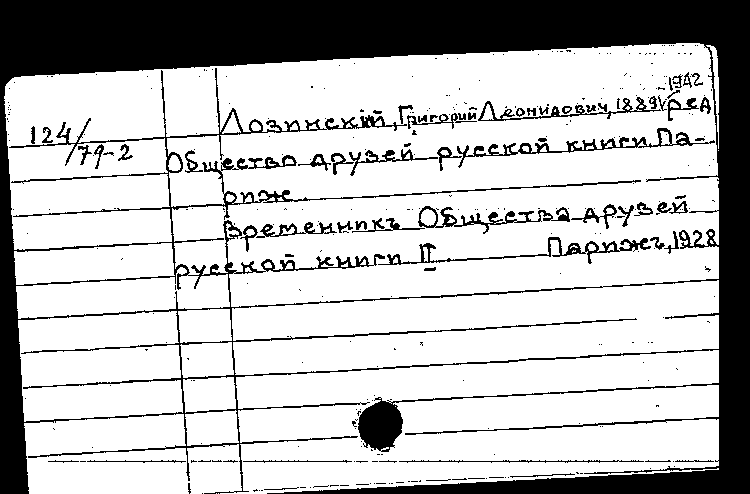 1942
Лозинскій, Григорий Леонидович, 1889 ред
124/79-2
Общество друзей русской книги. Па-
риж.
Временникъ Общества друзей
русской книги II. Парижъ, 1928